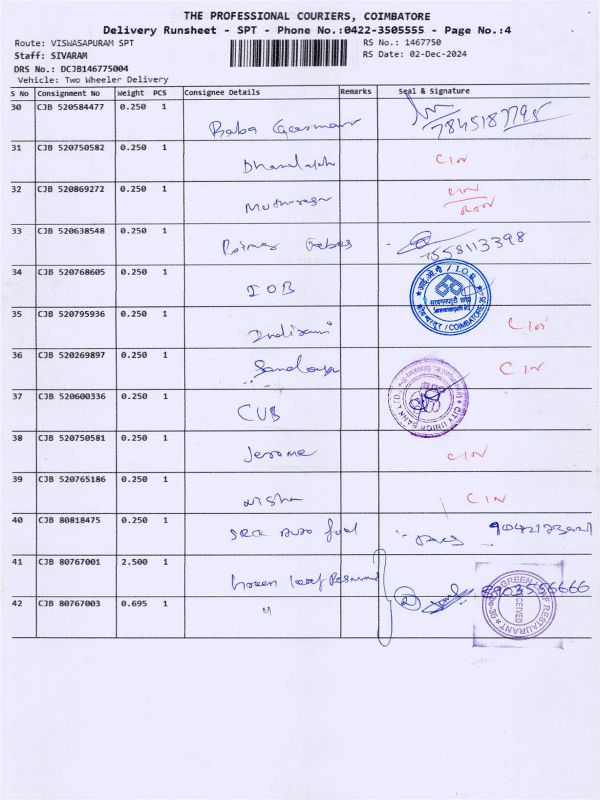 THE PROFESSIONAL COURIERS, COIMBATORE
Delivery Runsheet - SPT - Phone No.:0422-3505555 - Page No.:4
Route: VISWASAPURAM SPT RS No.: 1467750
Staff: SIVARAM RS Date: 02-Dec-2024
DRS No.: DCJB146775004
Vehicle: Two Wheeler Delivery
S No Consignment No Weight PCS Consignee Details Remarks Seal & Signature
30 CJB 520584477 0.250 1 Baba 7845187795
31 CJB 520750582 0.250 1 CIN
32 CJB 520869272 0.250 1 CIN
33 CJB 520638548 0.250 1 7558113398
34 CJB 520768605 0.250 1 IOB I.O.B. COIMBATORE
35 CJB 520795936 0.250 1 CIN
36 CJB 520269897 0.250 1 CIN
37 CJB 520600336 0.250 1 CUB CITY UNION BANK LTD.
38 CJB 520750581 0.250 1 Jerome CIN
39 CJB 520765186 0.250 1 Nisha CIN
40 CJB 80818475 0.250 1 fuel
41 CJB 80767001 2.500 1 Green Leaf
42 CJB 80767003 0.695 1 " 2 8903556666 GREEN LEAF RESTAURANT RECEIVED